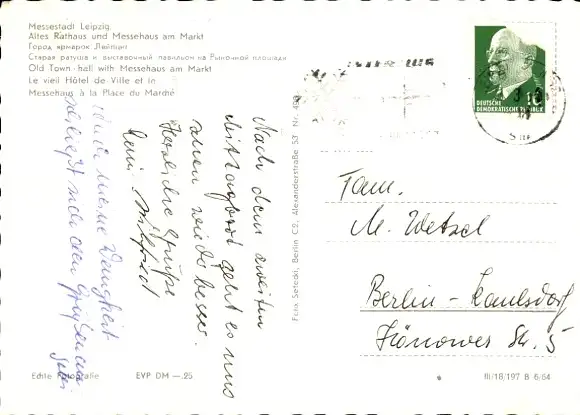 Messestadt Leipzig
Altes Rathaus und Messehaus am Markt
Город ярмарок Лейпциг
Старая ратуша и выставочный павильон на Рыночной площади
Old Town-hall with Messehaus am Markt
Le vieil Hôtel de Ville et le
Messehaus à la Place du Marché
Nach dem zweiten
Mittagbrot geht es uns
allen wieder besser.
Herzliche Grüße
Wilfried
Auch meine Wenigkeit
schließt sich den Grüßen an
Felix Setecki, Berlin C2, Alexanderstraße 53 Nr. 490
10
DEUTSCHE
DEMOKRATISCHE REPUBLIK
Fam.
M. Wetzel
Berlin-Kaulsdorf
Hönower Str. 5
Echte Fotografie
EVP DM —.25
III/18/197 B 6/64